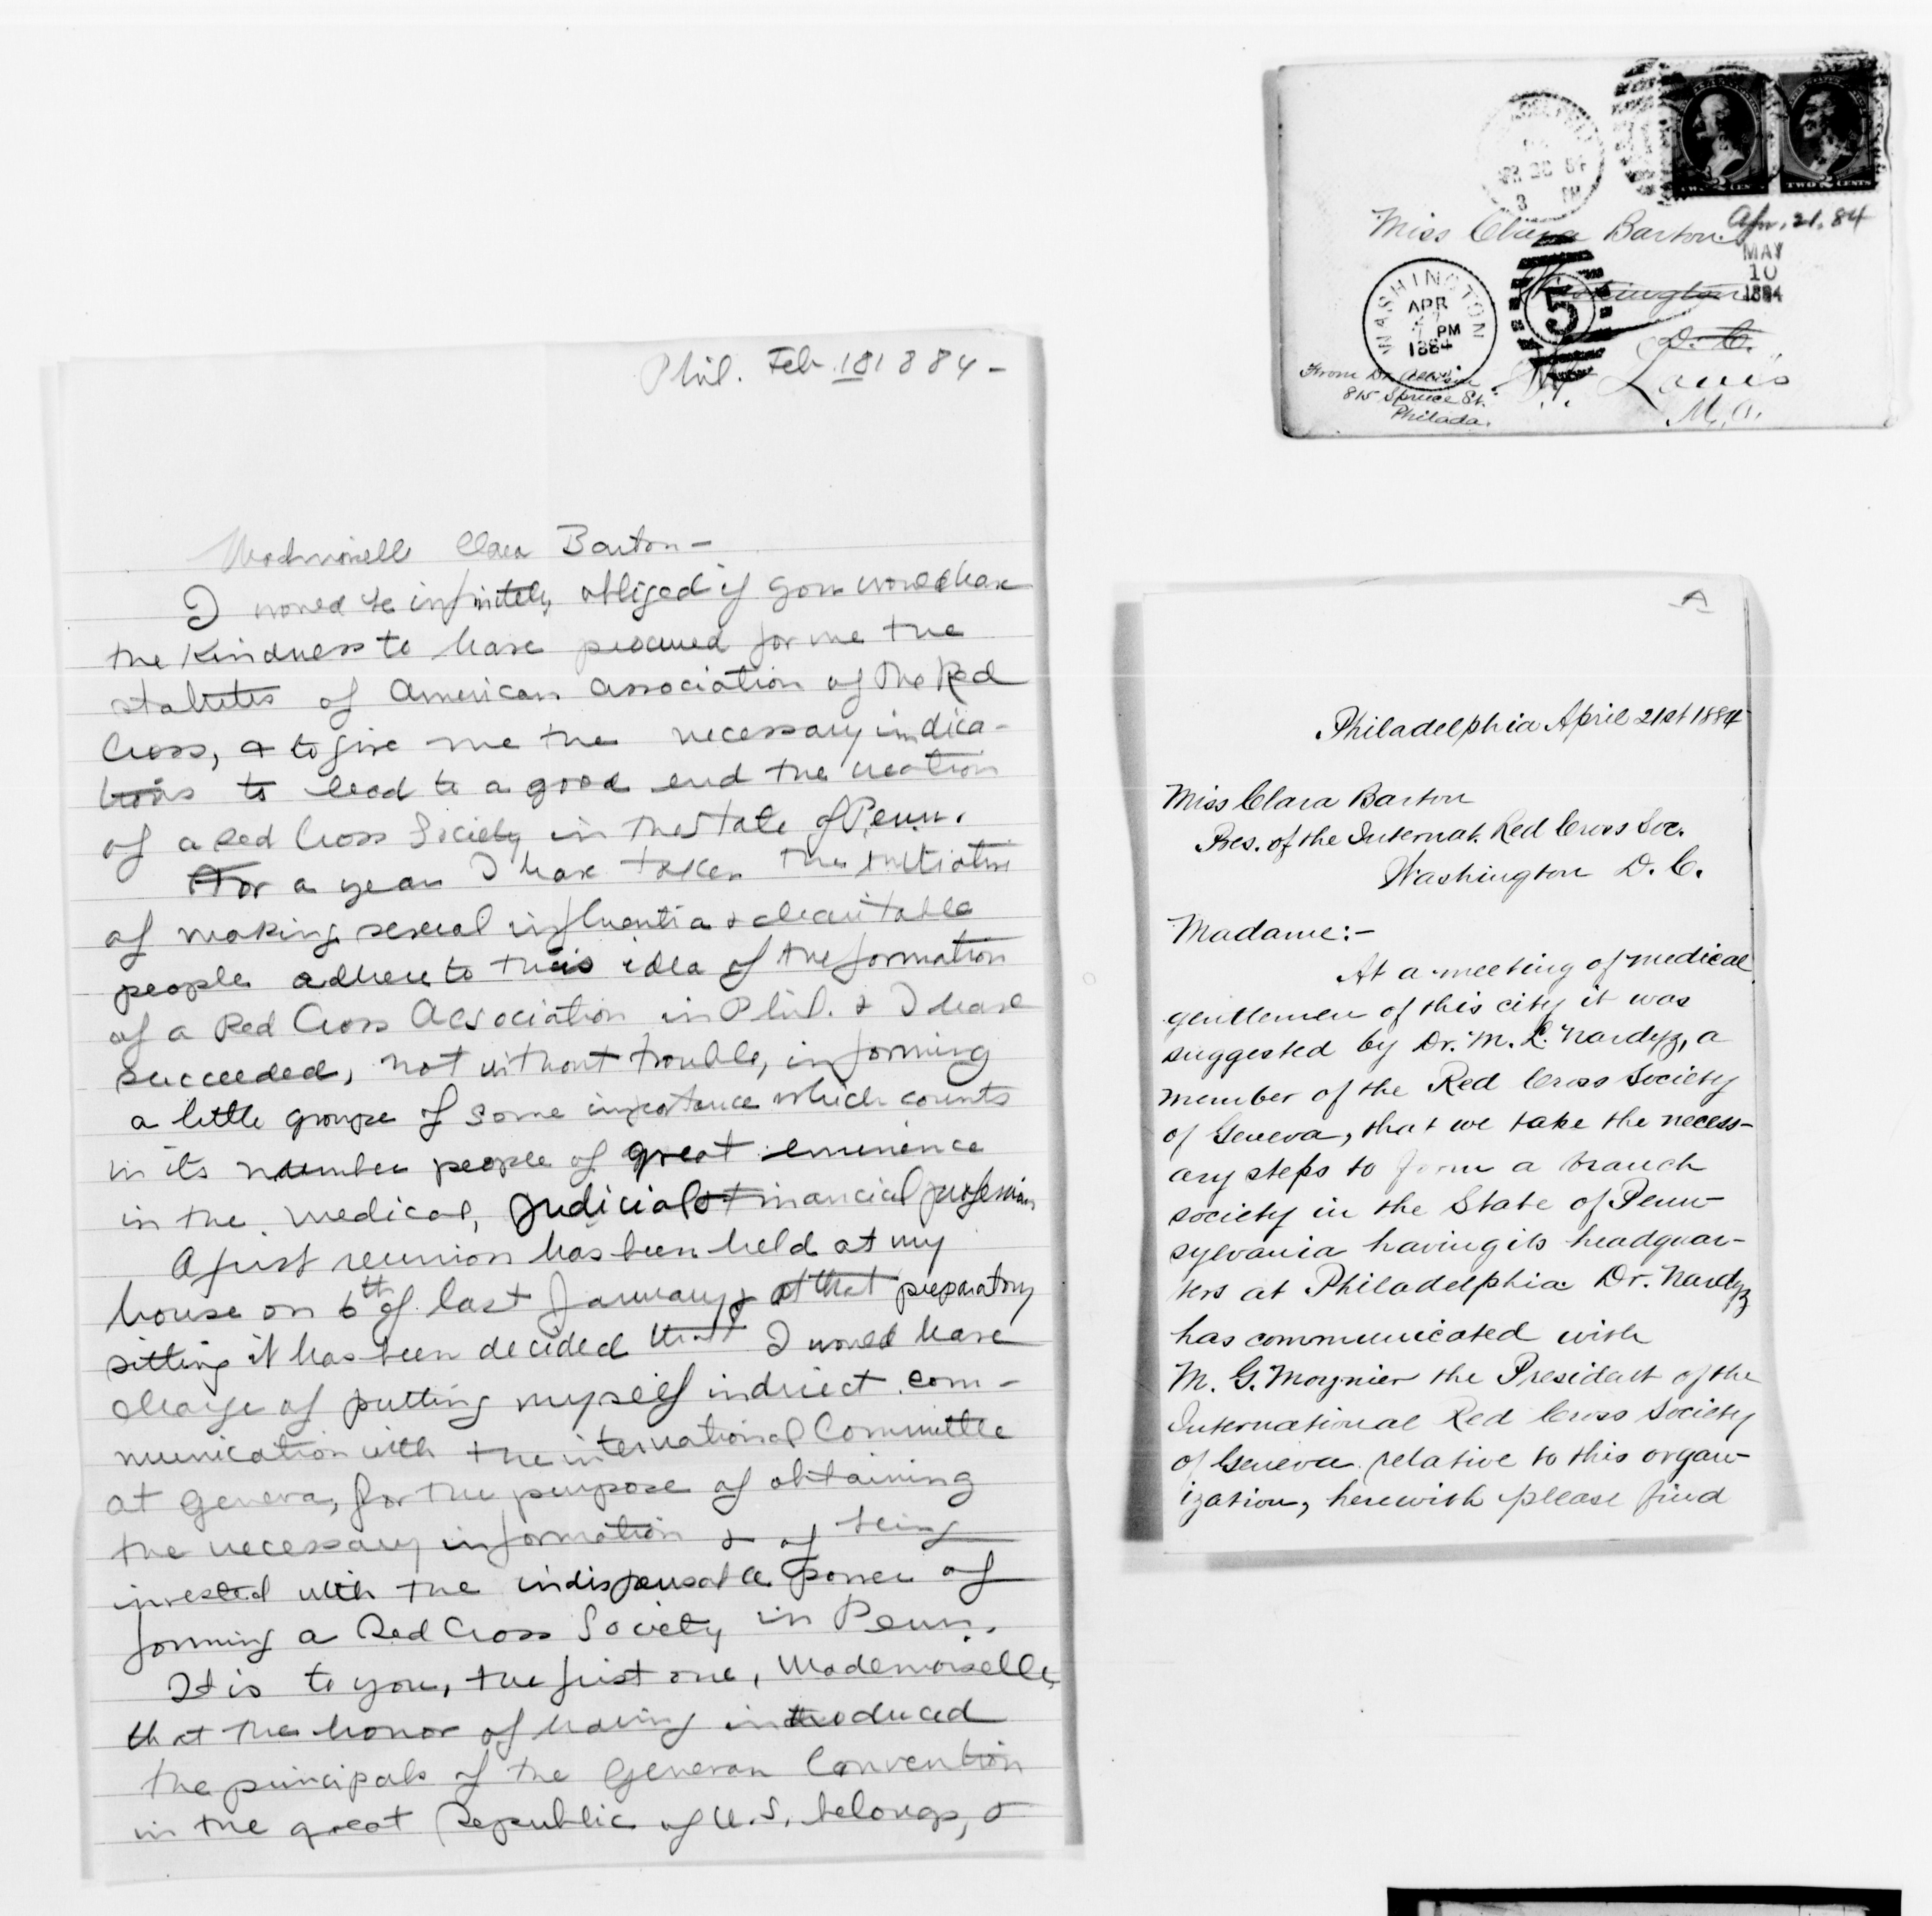 Phil. Feb 18 1884 –
Madmoiselle Clara Barton –
I would be infinitely obliged if you would have
the kindness to have procured for me the
statutes of American Association of the Red
Cross, & to give me the necessary indica-
tions to lead to a good end the creation
of a Red Cross Society in the State of Penn.
For a year I have taken the initiative
of making several influential & charitable
people adhere to this idea of the formation
of a Red Cross Association in Phil. & I have
succeeded, not without trouble, in forming
a little groupe of some importance which counts
in its number people of great eminence
in the medical, Judicial & Financial profession
A first reunion has been held at my
house on 6th of last January, & at that preparatory
sitting it has been decided that I would have
charge of putting myself in direct com-
munication with the international Committee
at Geneva, for the purpose of obtaining
the necessary information & of being
invested with the indispensable power of
forming a Red Cross Society in Penn.
It is to you, the first one, Mademoiselle,
that the honor of having introduced
the principals of the Genevan Convention
in the great Republic of U.S. belongs, &
APR 20 84
3 PM
TWO CENTS
TWO 2 CENTS
Miss Clara Barton
Apr. 21. 84
MAY
10
1884
Washington
D. C.
WASHINGTON
APR
PM
1884
5
St Louis
M.O.
From Dr.
815 Spruce St.
Philada.
A
Philadelphia April 21st 1884
Miss Clara Barton
Pres. of the Internat. Red Cross Soc.
Washington D. C.
Madame:–
At a meeting of medical
gentlemen of this city it was
suggested by Dr. M. L. Nardyz, a
member of the Red Cross Society
of Geneva, that we take the necess-
ary steps to form a branch
society in the State of Penn-
sylvania having its headquar-
ters at Philadelphia Dr. Nardyz
has communicated with
M. G. Moynier the President of the
International Red Cross Society
of Geneva relative to this organ-
ization, herewith please find